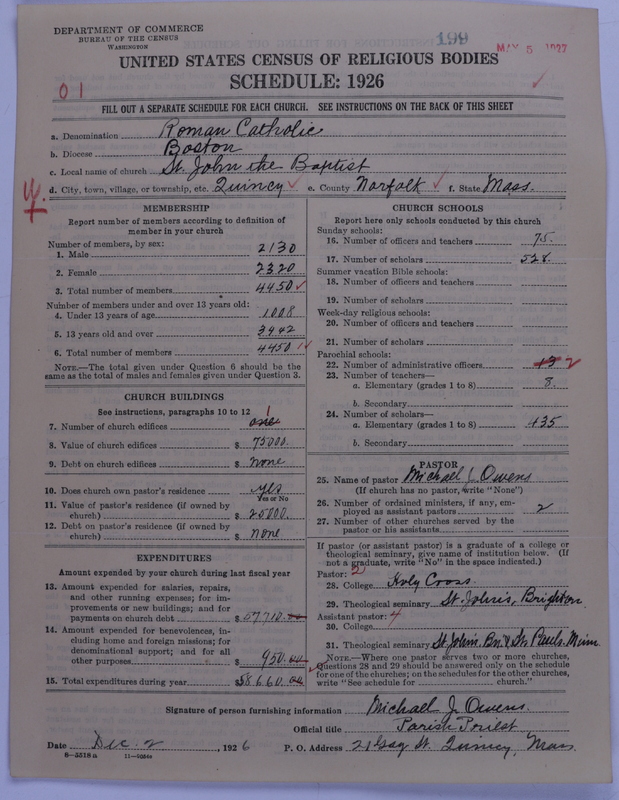 DEPARTMENT OF COMMERCE
BUREAU OF THE CENSUS
WASHINGTON
199
MAY 5 1927
UNITED STATES CENSUS OF RELIGIOUS BODIES
SCHEDULE: 1926
01
FILL OUT A SEPARATE SCHEDULE FOR EACH CHURCH. SEE INSTRUCTIONS ON THE BACK OF THIS SHEET
a. Denomination Roman Catholic
b. Diocese Boston
c. Local name of church St. John the Baptist
d. City, town, village, or township, etc. Quincy e. County Norfolk f. State Mass.
MEMBERSHIP
Report number of members according to definition of
member in your church
Number of members, by sex:
1. Male 2130
2. Female 2320
3. Total number of members 4450
Number of members under and over 13 years old:
4. Under 13 years of age 1008
5. 13 years old and over 3442
6. Total number of members 4450
NOTE.—The total given under Question 6 should be the
same as the total of males and females given under Question 3.
CHURCH BUILDINGS
See instructions, paragraphs 10 to 12
7. Number of church edifices one 1
8. Value of church edifices $ 75000.
9. Debt on church edifices $ none
10. Does church own pastor's residence yes
Yes or No
11. Value of pastor's residence (if owned by
church) $ 25000.
12. Debt on pastor's residence (if owned by
church) $ none
EXPENDITURES
Amount expended by your church during last fiscal year
13. Amount expended for salaries, repairs,
and other running expenses; for im-
provements or new buildings; and for
payments on church debt $ 57710.00
14. Amount expended for benevolences, in-
cluding home and foreign missions; for
denominational support; and for all
other purposes $ 950.00
15. Total expenditures during year $ 58660.00
CHURCH SCHOOLS
Report here only schools conducted by this church
Sunday schools:
16. Number of officers and teachers 75.
17. Number of scholars 528.
Summer vacation Bible schools:
18. Number of officers and teachers
19. Number of scholars
Week-day religious schools:
20. Number of officers and teachers
21. Number of scholars
Parochial schools:
22. Number of administrative officers 2
23. Number of teachers—
a. Elementary (grades 1 to 8) 8.
b. Secondary
24. Number of scholars—
a. Elementary (grades 1 to 8) 435
b. Secondary
PASTOR
25. Name of pastor Michael J. Owens
(If church has no pastor, write "None")
26. Number of ordained ministers, if any, em-
ployed as assistant pastors 2
27. Number of other churches served by the
pastor or his assistants
If pastor (or assistant pastor) is a graduate of a college or
theological seminary, give name of institution below. (If
not a graduate, write "No" in the space indicated.)
Pastor: 2
28. College Holy Cross.
29. Theological seminary St John's, Brighton
Assistant pastor: 4
30. College
31. Theological seminary St John, Bn. & St. Pauls. Minn
NOTE.—Where one pastor serves two or more churches,
Questions 28 and 29 should be answered only on the schedule
for one of the churches; on the schedules for the other churches,
write "See schedule for church."
Signature of person furnishing information Michael J. Owens.
Official title Parish Priest
Date Dec. 2, 1926 P. O. Address 21 Gay St. Quincy, Mass
8—5518a 11—9056a